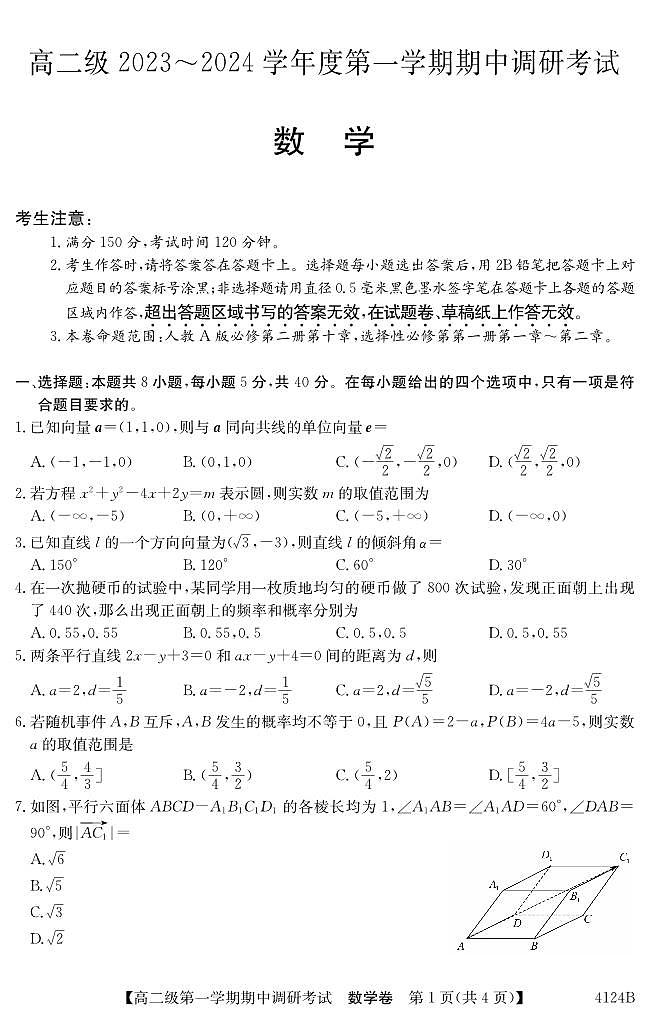 高二级 2023～2024 学年度第一学期期中调研考试
数 学
考生注意:
1. 满分 150 分,考试时间 120 分钟。
2. 考生作答时,请将答案答在答题卡上。选择题每小题选出答案后,用 2B 铅笔把答题卡上对
应题目的答案标号涂黑;非选择题请用直径 0.5 毫米黑色墨水签字笔在答题卡上各题的答题
区域内作答,超出答题区域书写的答案无效,在试题卷、草稿纸上作答无效。
3. 本卷命题范围:人教 A 版必修第二册第十章,选择性必修第一册第一章～第二章。
一、选择题:本题共 8 小题,每小题 5 分,共 40 分。在每小题给出的四个选项中,只有一项是符
合题目要求的。
1. 已知向量 a=(1,1,0),则与 a 同向共线的单位向量 e=
A. (-1,-1,0) B. (0,1,0) C. (-√2/2,-√2/2,0) D. (√2/2,√2/2,0)
2. 若方程 x²+y²-4x+2y=m 表示圆,则实数 m 的取值范围为
A. (-∞,-5) B. (0,+∞) C. (-5,+∞) D. (-∞,0)
3. 已知直线 l 的一个方向向量为(√3,-3),则直线 l 的倾斜角 α=
A. 150° B. 120° C. 60° D. 30°
4. 在一次抛硬币的试验中,某同学用一枚质地均匀的硬币做了 800 次试验,发现正面朝上出现
了 440 次,那么出现正面朝上的频率和概率分别为
A. 0.55,0.55 B. 0.55,0.5 C. 0.5,0.5 D. 0.5,0.55
5. 两条平行直线 2x-y+3=0 和 ax-y+4=0 间的距离为 d,则
A. a=2,d=1/5 B. a=-2,d=1/5 C. a=2,d=√5/5 D. a=-2,d=√5/5
6. 若随机事件 A,B 互斥,A,B 发生的概率均不等于 0,且 P(A)=2-a,P(B)=4a-5,则实数
a 的取值范围是
A. (5/4,4/3] B. (5/4,3/2) C. (5/4,2) D. [5/4,3/2]
7. 如图,平行六面体 ABCD-A₁B₁C₁D₁ 的各棱长均为 1,∠A₁AB=∠A₁AD=60°,∠DAB=
90°,则|AC₁|=
A. √6
B. √5
C. √3
D. √2
D₁
C₁
A₁
B₁
D
C
A
B
【高二级第一学期期中调研考试 数学卷 第 1 页(共 4 页)】 4124B